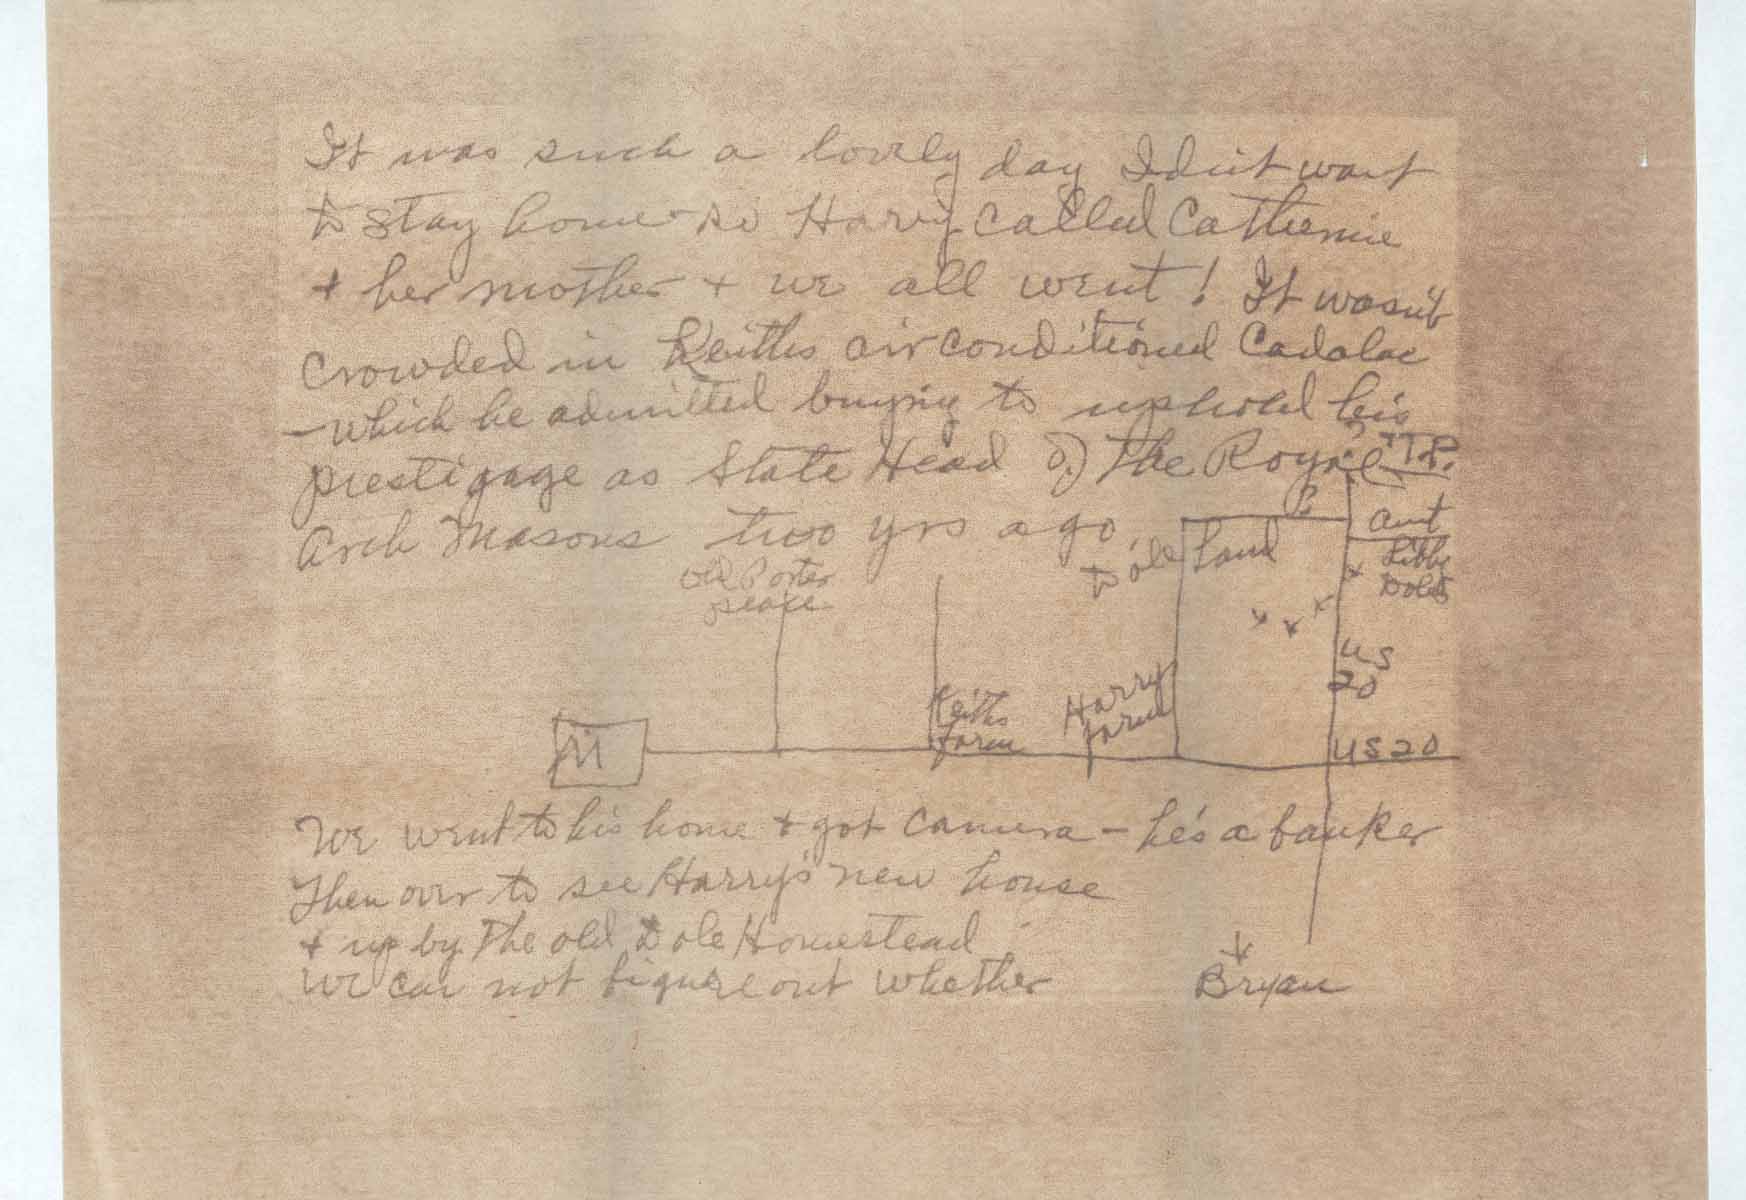 It was such a lovely day I didn't want
to stay home so Harry called Catherine
+ her mother + we all went! It wasn't
crowded in Keiths airconditioned Cadalac
- which he admitted buying to uphold his
prestigage as State Head of the Royal
Arch Masons two yrs ago
"T.P.
Aunt
Libby
Doles
to Dole Land
Old Porter
place
US
20
Keiths
farm
Harry
farm
M
US 20
We went to his home + got camera - he's a banker
Then over to see Harry's new house
+ up by the old Dole Homestead
We can not figure out whether
Bryan